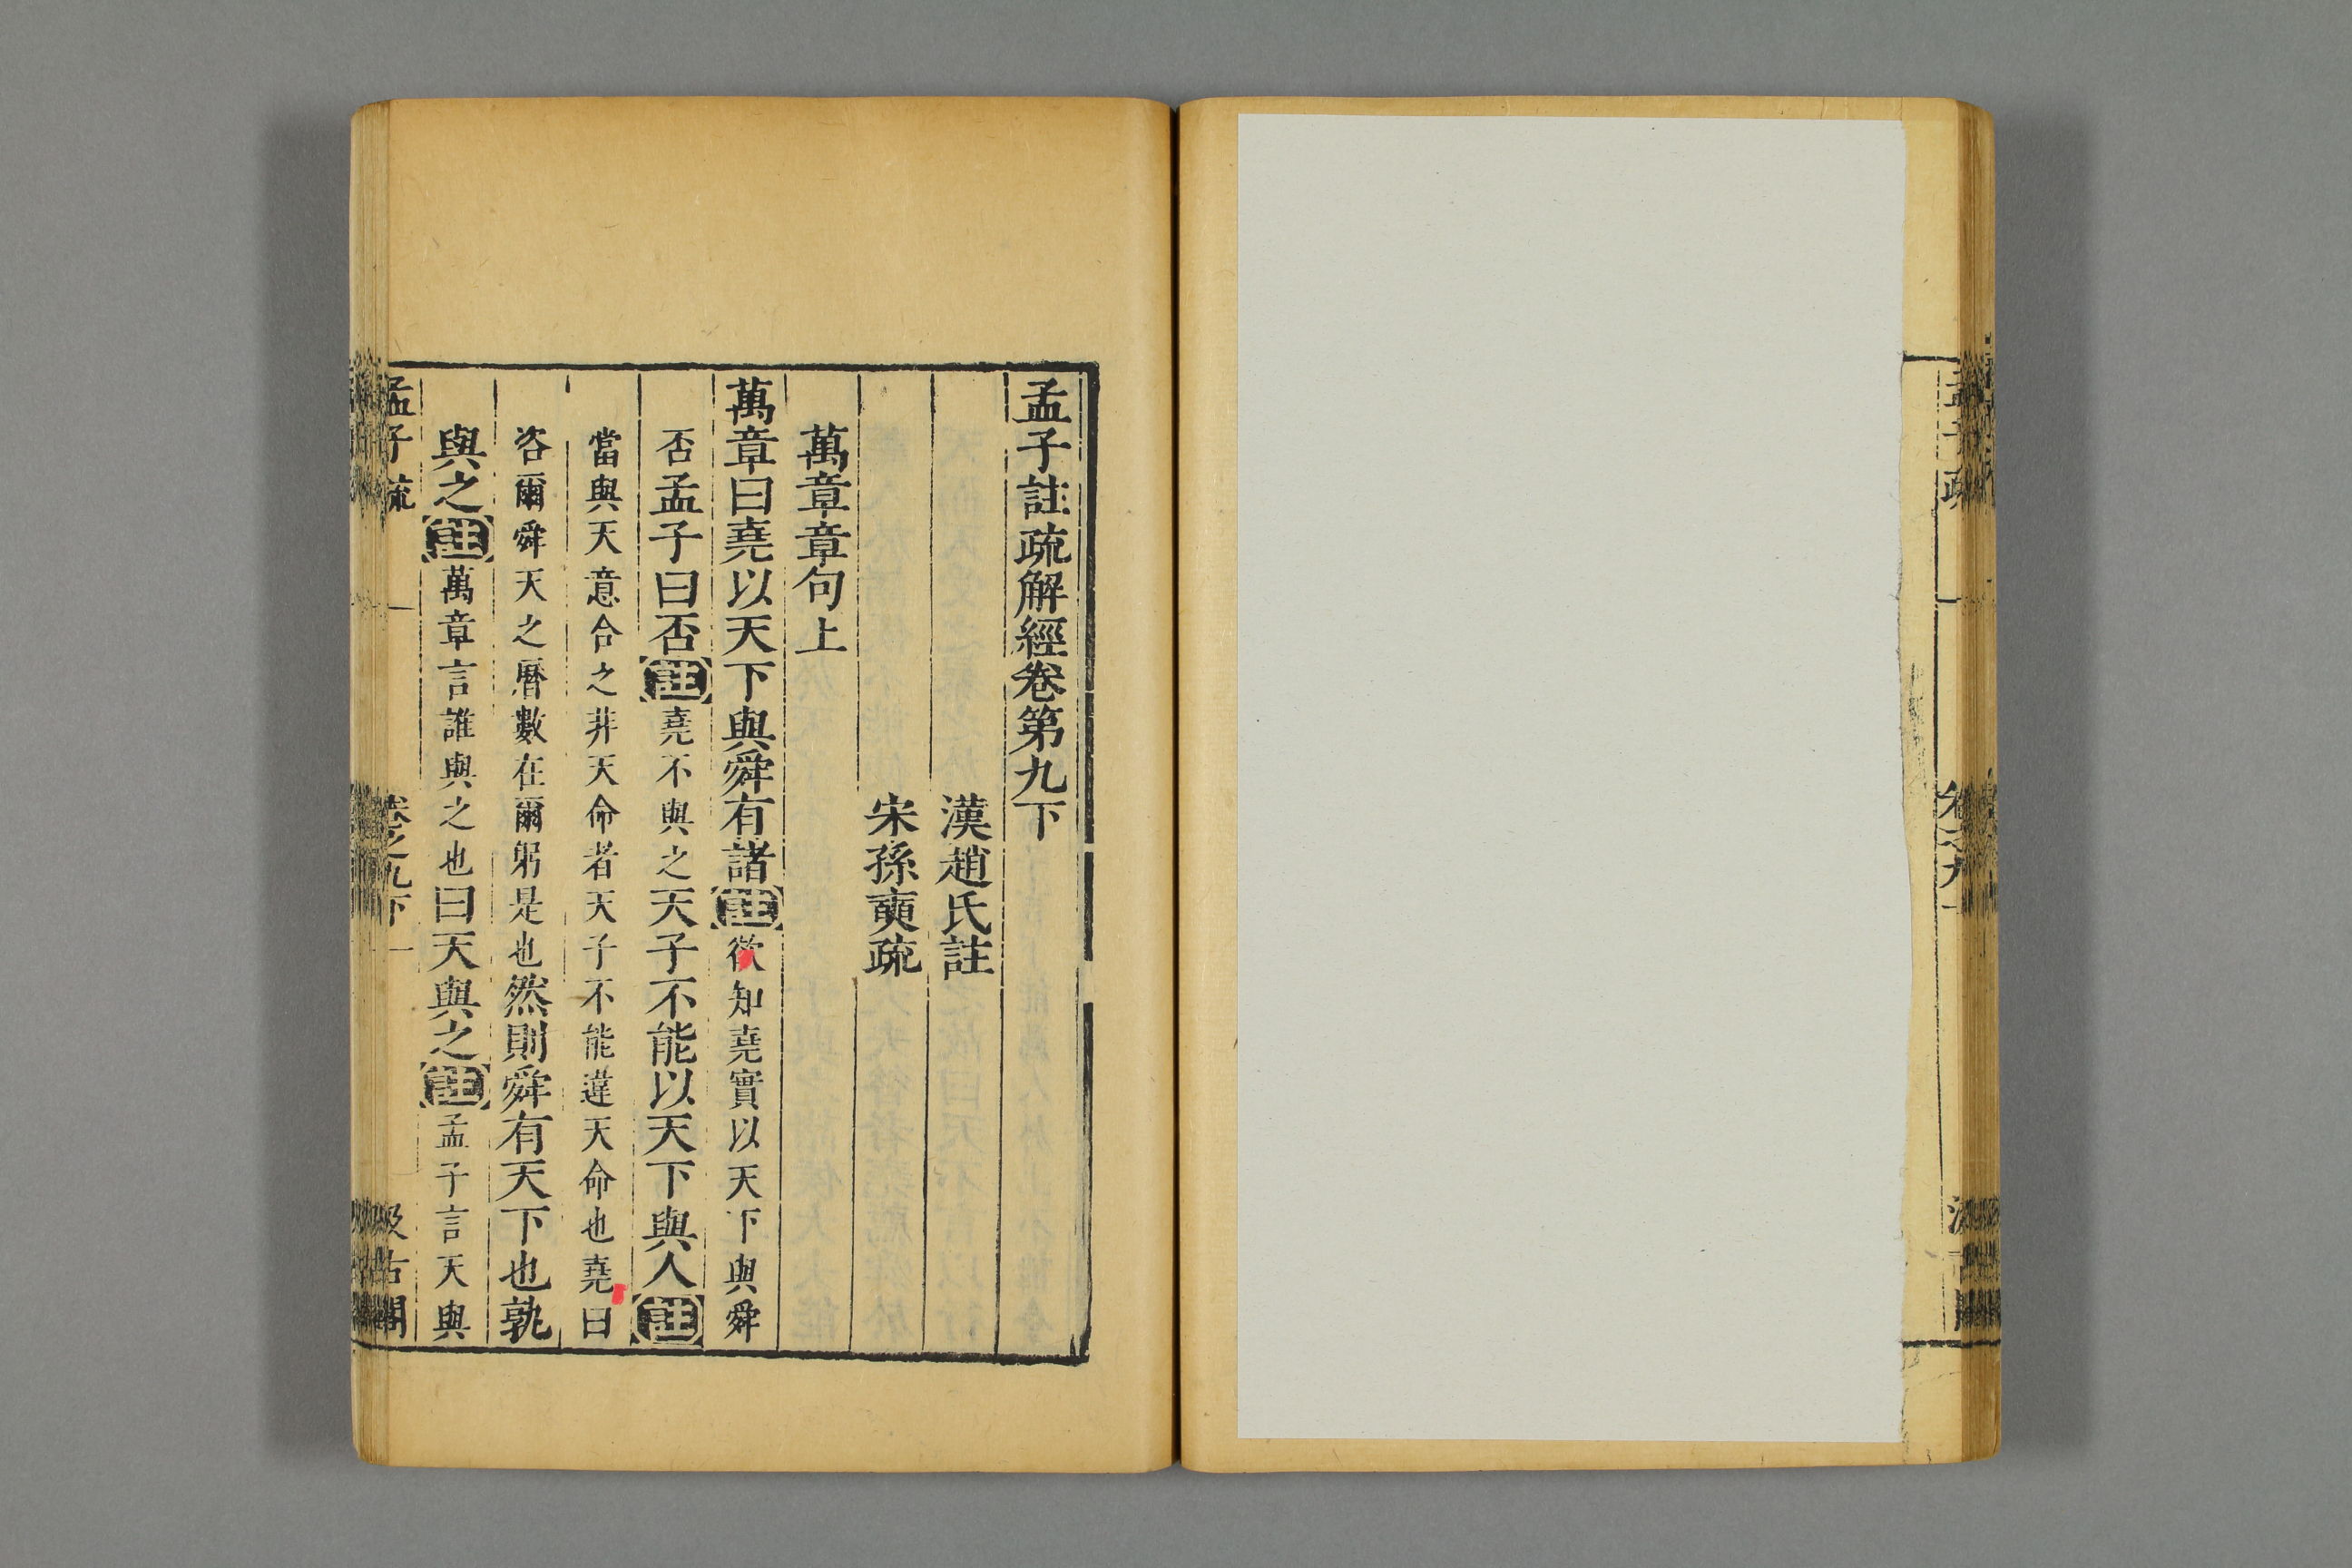 孟子註疏解經卷第九下
漢趙氏註
宋孫奭疏
萬章章句上
萬章曰堯以天下與舜有諸註欲知堯實以天下與舜
否孟子曰否註堯不與之天子不能以天下與人註
當與天意合之非天命者天子不能違天命也堯曰
咨爾舜天之曆數在爾躬是也然則舜有天下也孰
與之註萬章言誰與之也曰天與之註孟子言天與
孟子疏 卷之九下 一 汲古閣
孟子疏